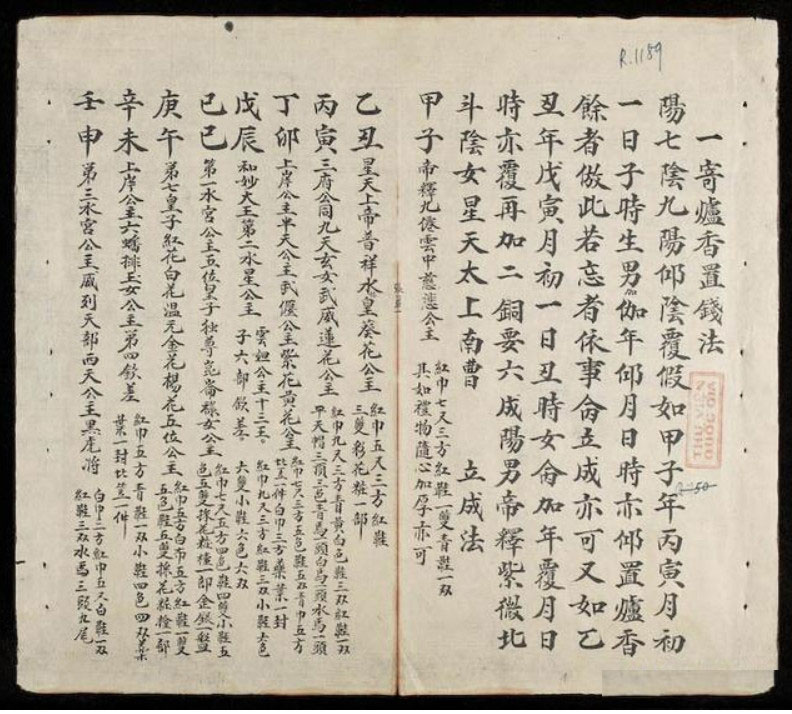 R.1189
一寄爐香置錢法
陽七陰九陽仰陰覆假如甲子年丙寅月初
一日子時生男加年仰月日時亦仰置爐香
餘者倣此若忘者依事命立成亦可又如乙
丑年戊寅月初一日丑時女命加年覆月日
時亦覆再加二銅要六成陽男帝釋紫微北
斗陰女星天太上南曹 立成法
甲子 帝釋九僊雲中慈悲公主 紅巾七尺三方紅鞋一雙青鞋一双
其如禮物隨心加厚亦可
THƯ VIỆN QUỐC GIA
乙丑 星天上帝普祥水皇葵花公主 紅巾五尺三方紅鞋
三雙彩花粧一部
丙寅 三府公同九天玄女武威蓮花公主 紅巾九尺三方青黃白色鞋三双紅鞋一双
平天帽三頂三色青馬一頭白馬一頭水馬一頭
丁卯 上岸公主半天公主武偃公主紫花黃花公主 紅巾七尺三方五色鞋五双青巾五方
一件白巾三方藥葉一封
戊辰 和妙大王第二水星公主 雲妲公主十三王
子六部欽差 紅巾九尺三方紅鞋三双小鞋六色
六雙小鞋六色六双
己巳 第一水宮公主五位皇子独尊崑崙祿女公主 紅巾七尺五方四色鞋四双小鞋五
色五雙揮花粧檯一部金銀一盤
庚午 第七皇子紅花白花溫元金花楊花五位公主 紅巾五方白布五方紅鞋一雙
五色鞋五雙揮花粧檯一部
辛未 上岸公主六蟠排玉女公主第四欽差 紅巾五方青鞋一双小鞋四色四双藥
葉一封一件
壬申 第三水宮公主威列天部西天公主黑虎將 白巾三方紅巾五尺白鞋一双
紅鞋三双水馬三頭九尾